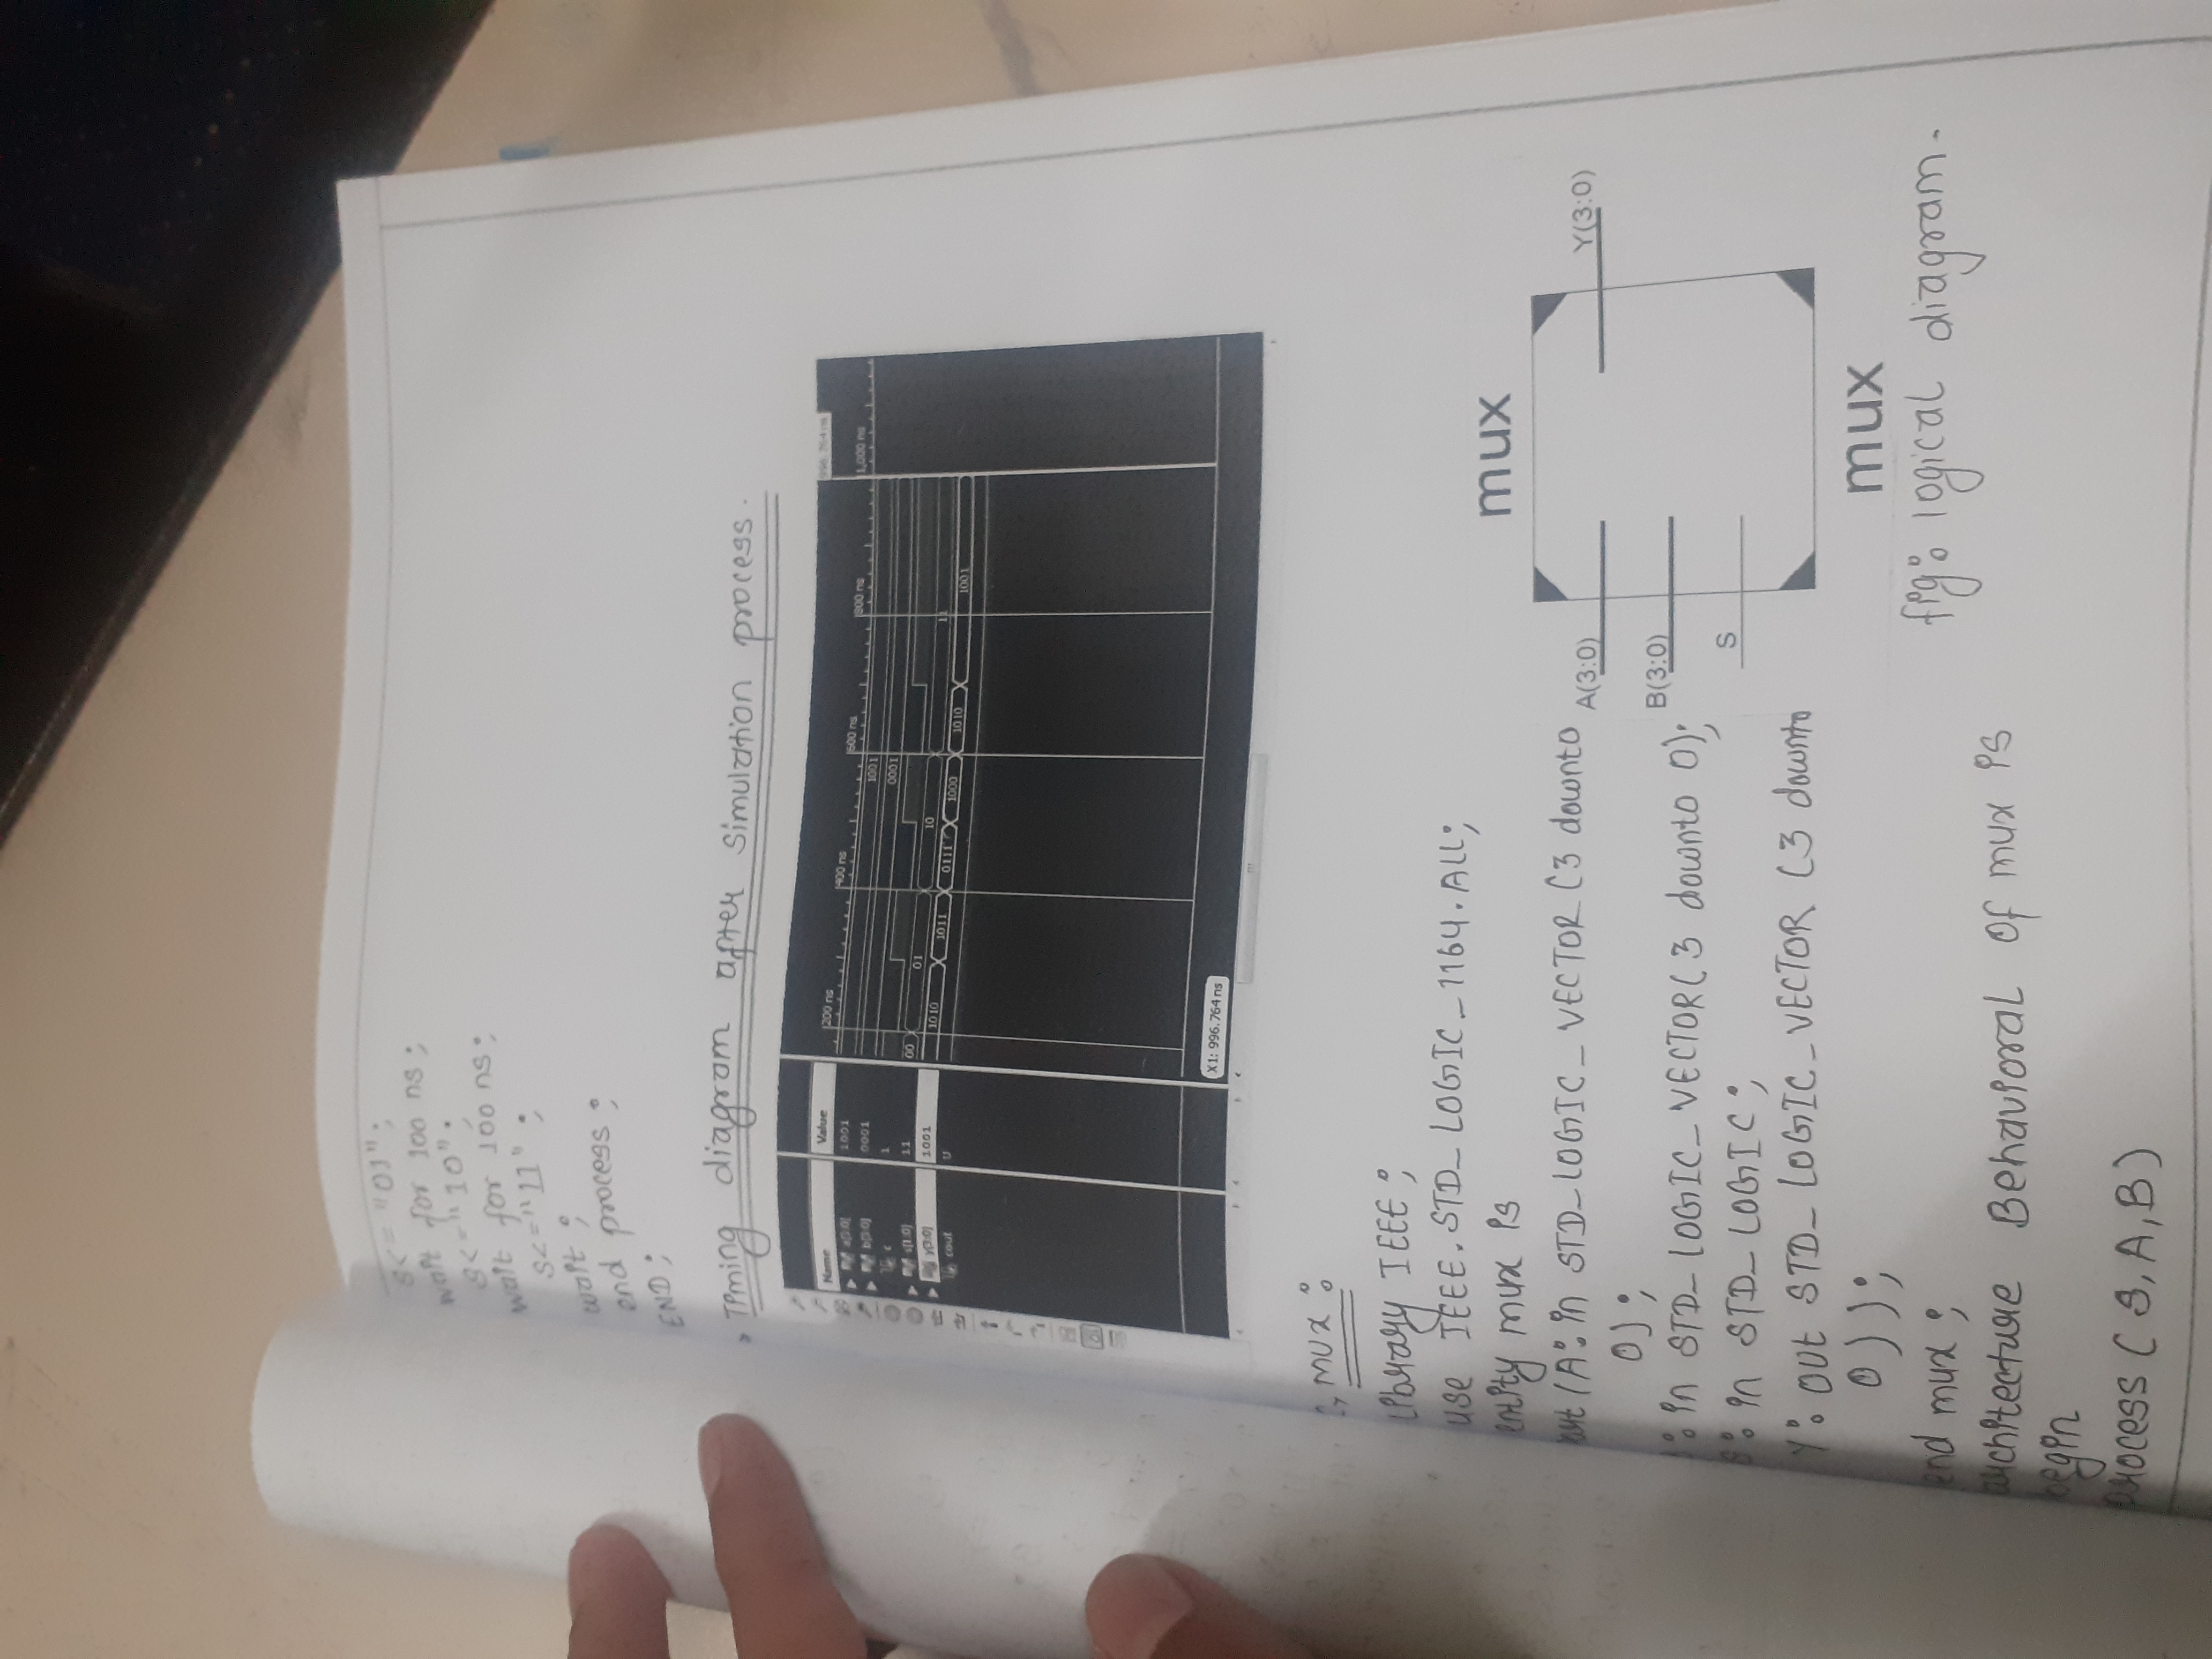 s<= "01";
wait for 100 ns;
s<="10";
wait for 100 ns;
s<="11";
wait;
end process;
END;
Timing diagram after simulation process.
Name Value
a[3:0] 1001
b[3:0] 0001
c 1
s[1:0] 11
y[3:0] 1001
cout U
200 ns 400 ns 600 ns 800 ns 996.764 ns 1,000 ns
1001
0001
00 01 10 11
1010 1011 0111 1000 1010 1001
X1: 996.764 ns
mux:
library IEEE;
use IEEE.STD_LOGIC_1164.ALL;
entity mux is
(A: in STD_LOGIC_VECTOR (3 downto
0);
: in STD_LOGIC_VECTOR(3 downto 0);
: in STD_LOGIC;
Y: out STD_LOGIC_VECTOR (3 downto
0));
end mux;
architecture Behavioral of mux is
begin
process (S,A,B)
mux
A(3:0)
Y(3:0)
B(3:0)
S
mux
fig: logical diagram.